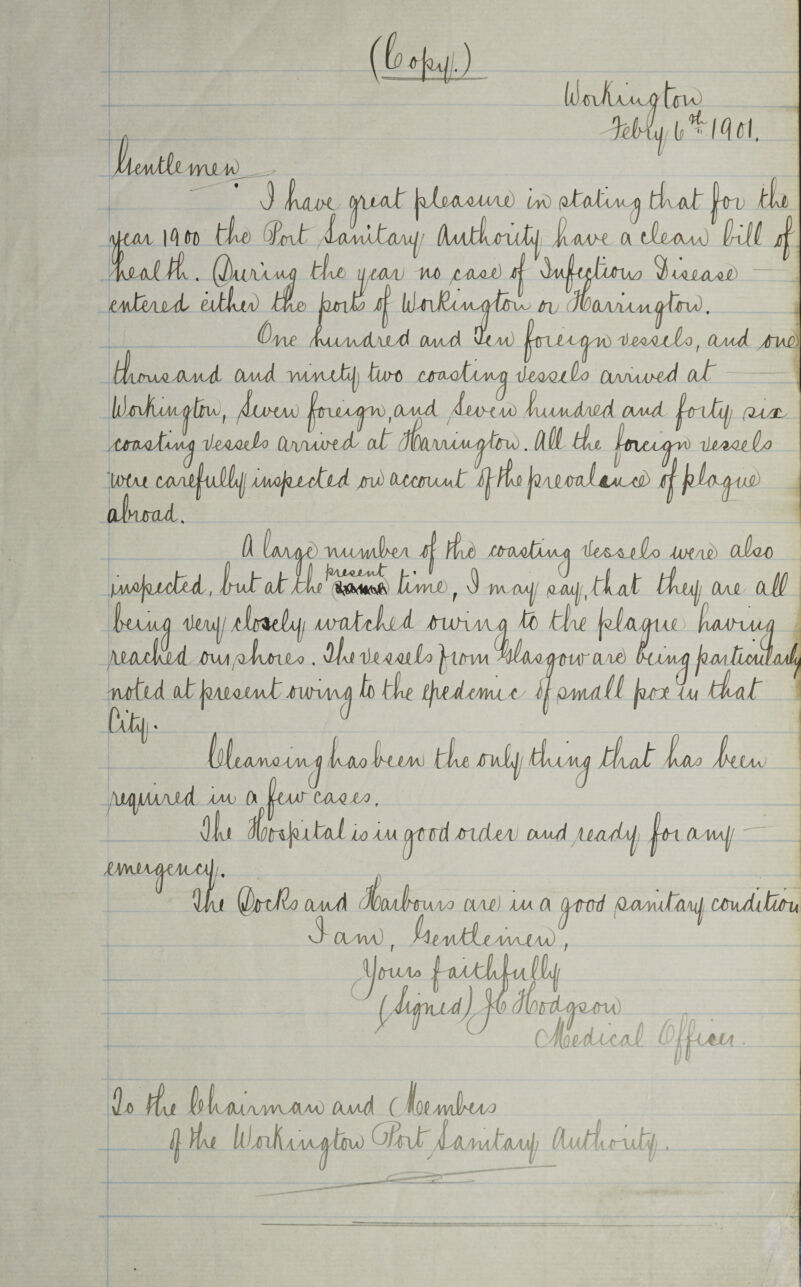 (Copy.)
Workington
Febry 6th 1901.
Gentlemen
I have great pleasure in stating that for the
year 1900 the Port Sanitary Authority have a clean bill of
health. During the year no case of Infectious Disease
entered either the ports of Workington or Harrington.
One hundred and Ten foreign vessels, and one
thousand and ninety two coasting vessels arrived at
Workington, Seven foreign, and Seven hundred and forty six
coasting vessels arrived at Harrington. All the foreign vessels
were carefully inspected on account of the prevalance of plague
abroad.
A large number of the coasting vessels were also
inspected, but at the present time, I may say, that they are all
being very closely watched owing to the plague having
reached our shores. The vessels from Glasgow are being particularly
noted at present owing to the epedemic of small pox in that
City.
Cleansing has been the only thing that has been
required in a few cases.
The Hospital is in good order and ready for any
emergency.
The Docks and Harbours are in a good sanitary condition
I am, Gentlemen,
Yours faithfully
(Signed) Hodgson
Medical Officer.
To the Chairman and Members
of the Workington Port Sanitary Authority.